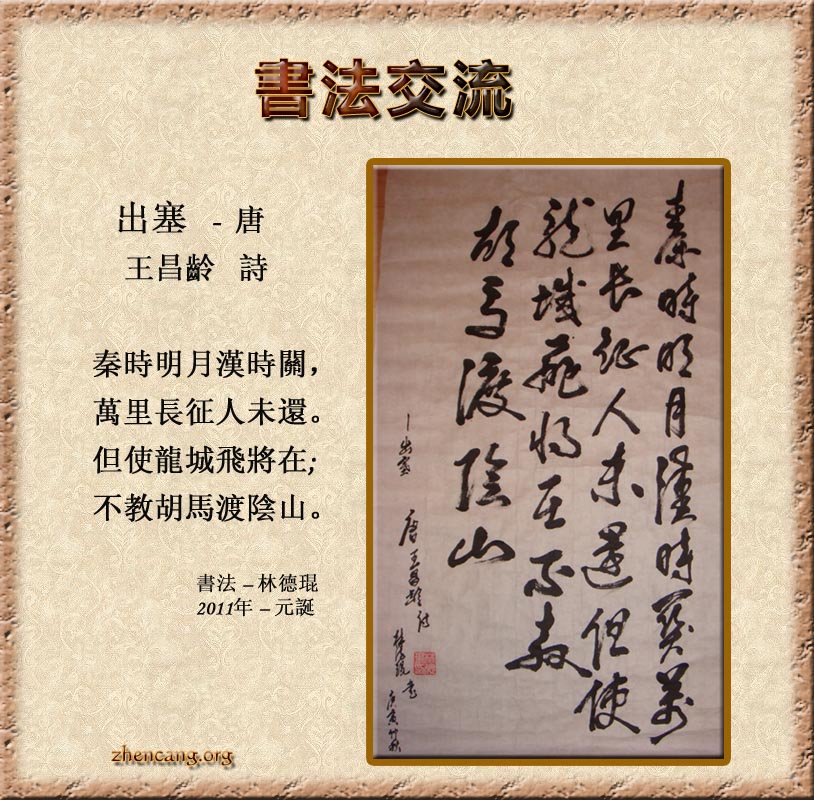 書法交流
出塞 - 唐
王昌齡 詩
秦時明月漢時關，
萬里長征人未還。
但使龍城飛將在;
不教胡馬渡陰山。
書法 – 林德琨
2011年 – 元誕
zhencang.org
秦時明月漢時關萬
里長征人未還但使
龍城飛將在不教
胡馬渡陰山
－出塞 唐 王昌齡詩
林德琨書 庚寅仲秋